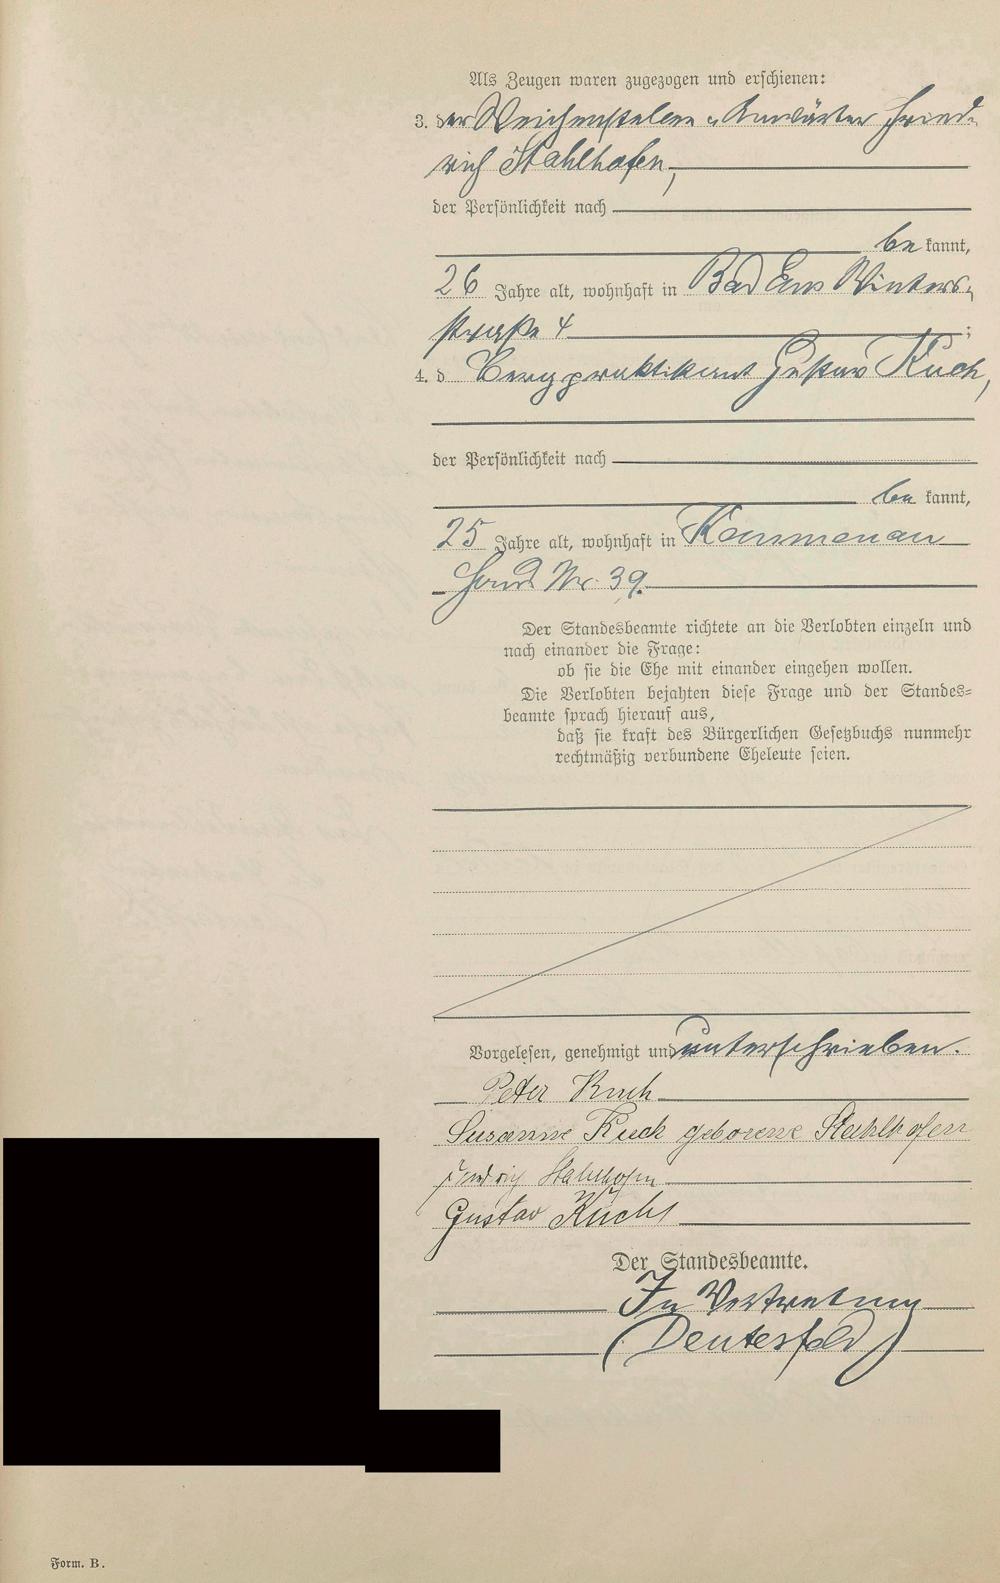 Als Zeugen waren zugezogen und erschienen:
3. der Weichensteller-Anwärter Fried-
rich Stahlhofen,
der Persönlichkeit nach
be kannt,
26 Jahre alt, wohnhaft in Bad Ems Winters-
straße 4 ;
4. d Bergpraktikant Gustav Kuch,
der Persönlichkeit nach
be kannt,
25 Jahre alt, wohnhaft in Kemmenau
Haus Nr. 39.
Der Standesbeamte richtete an die Verlobten einzeln und
nach einander die Frage:
ob sie die Ehe mit einander eingehen wollen.
Die Verlobten bejahten diese Frage und der Standes=
beamte sprach hierauf aus,
daß sie kraft des Bürgerlichen Gesetzbuchs nunmehr
rechtmäßig verbundene Eheleute seien.
Vorgelesen, genehmigt und unterschrieben.
Peter Kuch
Susanne Kuch geborene Stahlhofen
Friedrich Stahlhofen
Gustav Kuch
Der Standesbeamte.
In Vertretung
(Deutesfeld)
Form. B.